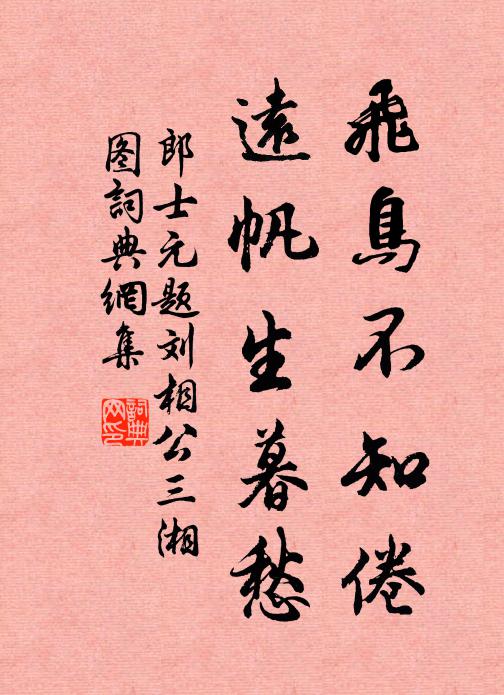 飛鳥不知倦
遠帆生暮愁
郎士元题刘相公三湘
图詞典網集
詞典
网印